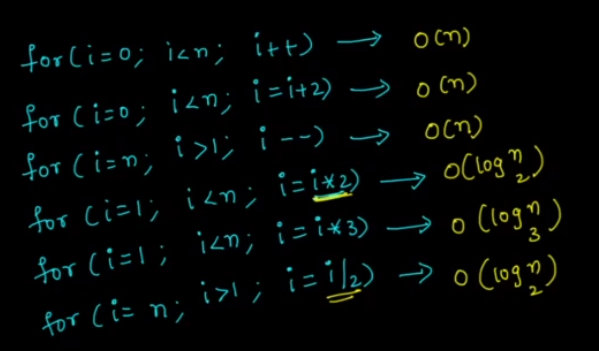 for(i=0; i<n; i++) → O(n)
for(i=0; i<n; i=i+2) → O(n)
for(i=n; i>1; i--) → O(n)
for(i=1; i<n; i=i*2) → O(log₂n)
for(i=1; i<n; i=i*3) → O(log₃n)
for(i=n; i>1; i=i/2) → O(log₂n)